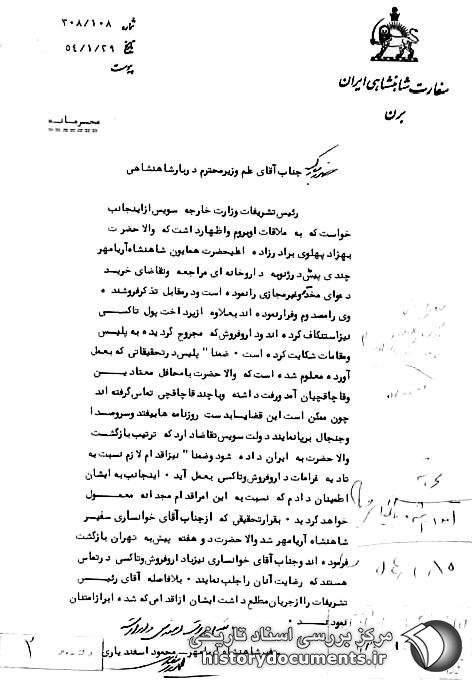 شماره ۳۰۸/۱۰۸
تاریخ ۵۴/۱/۲۹
پیوست
سفارت شاهنشاهی ایران
برن
محرمانه
جناب آقای علم وزیر محترم دربار شاهنشاهی
رئیس تشریفات وزارت خارجه سویس از اینجانب
خواست که به ملاقات او بروم و اظهار داشت که والا حضرت
بهزاد پهلوی برادر زاده اعلیحضرت همایون شاهنشاه آریامهر
چندی پیش در ژنو به داروخانه ای مراجعه و تقاضای خرید
دوای مخدر و غیر مجازی را نموده است و در مقابل تذکر فروشنده
وی را مصدوم و فرار نموده اند بعلاوه از پرداخت پول تاکسی
نیز استنکاف کرده اند و دارو فروش که مجروح گردیده به پلیس
و مقامات شکایت کرده است ۰ ضمنا" پلیس در تحقیقاتی که بعمل
آورده معلوم شده است که والا حضرت با محافل معتادین
و قاچاقچیان آمد و رفت داشته و با چند قاچاقچی تماس گرفته اند
چون ممکن است این قضایا بدست روزنامه ها بیفتد و سر و صدا
و جنجال برپا نمایند دولت سویس تقاضا دارد که ترتیب بازگشت
والا حضرت به ایران داده شود و ضمنا" نیز اقدام لازم نسبت به
تادیه غرامات دارو فروش و تاکسی بعمل آید ۰ اینجانب به ایشان
اطمینان دادم که نسبت به این امر اقدام مجدانه معمول
خواهد گردید ۰ بقرار تحقیقی که از جناب آقای خوانساری سفیر
شاهنشاه آریامهر شد والا حضرت دو هفته پیش به تهران بازگشت
فرموده اند و جناب آقای خوانساری نیز با دارو فروش و تاکسی در تماس
هستند که رضایت آنان را جلب نمایند ۰ بلافاصله آقای رئیس
تشریفات را از جریان مطلع داشت ایشان از اقدامی که شده ابراز امتنان
نمودند ۰
سفیر شاهنشاه آریامهر - محمود اسفندیاری
۲
مرکز بررسی اسناد تاریخی
historydocuments.ir